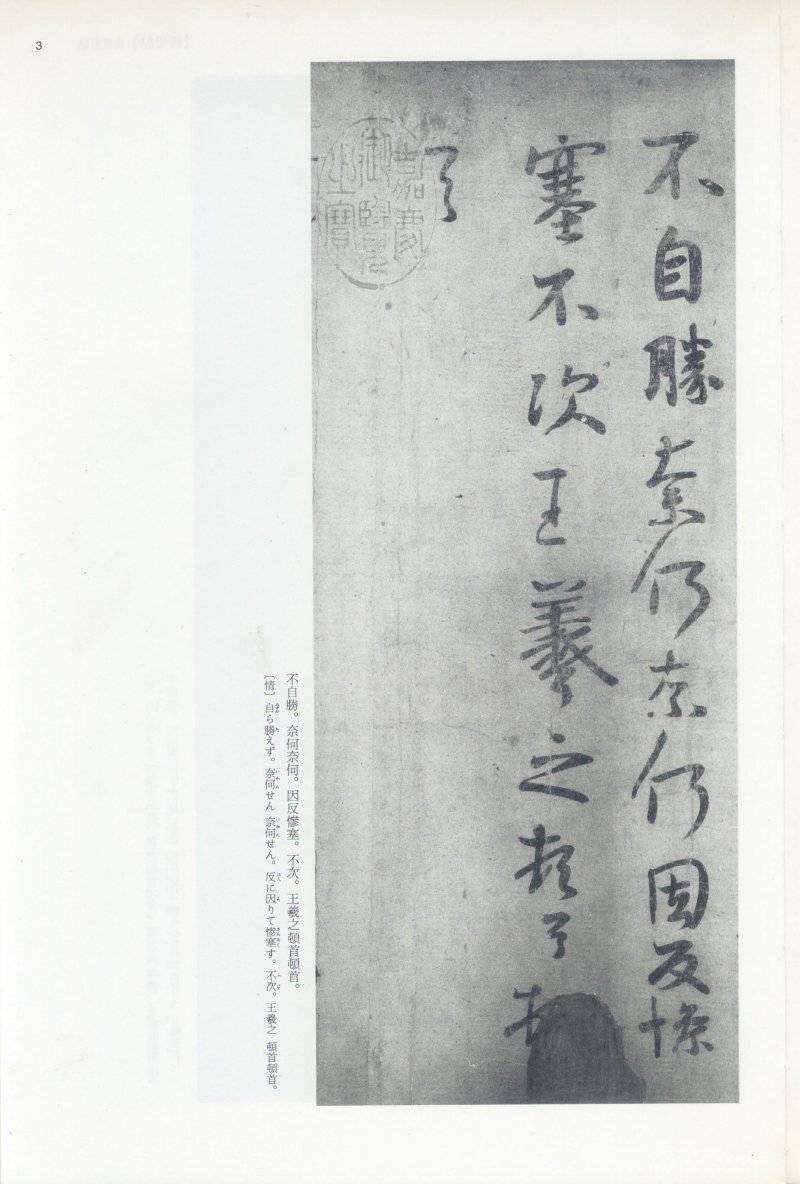 3
不自勝奈何奈何因反慘
塞不次王羲之頓首頓
首
嘉慶
御覽
之寶
不自勝。奈何奈何。因反慘塞。不次。王羲之頓首頓首。
〔情〕自ら勝えず。奈何せん 奈何せん。反に因りて慘塞す。不次。王羲之 頓首頓首。